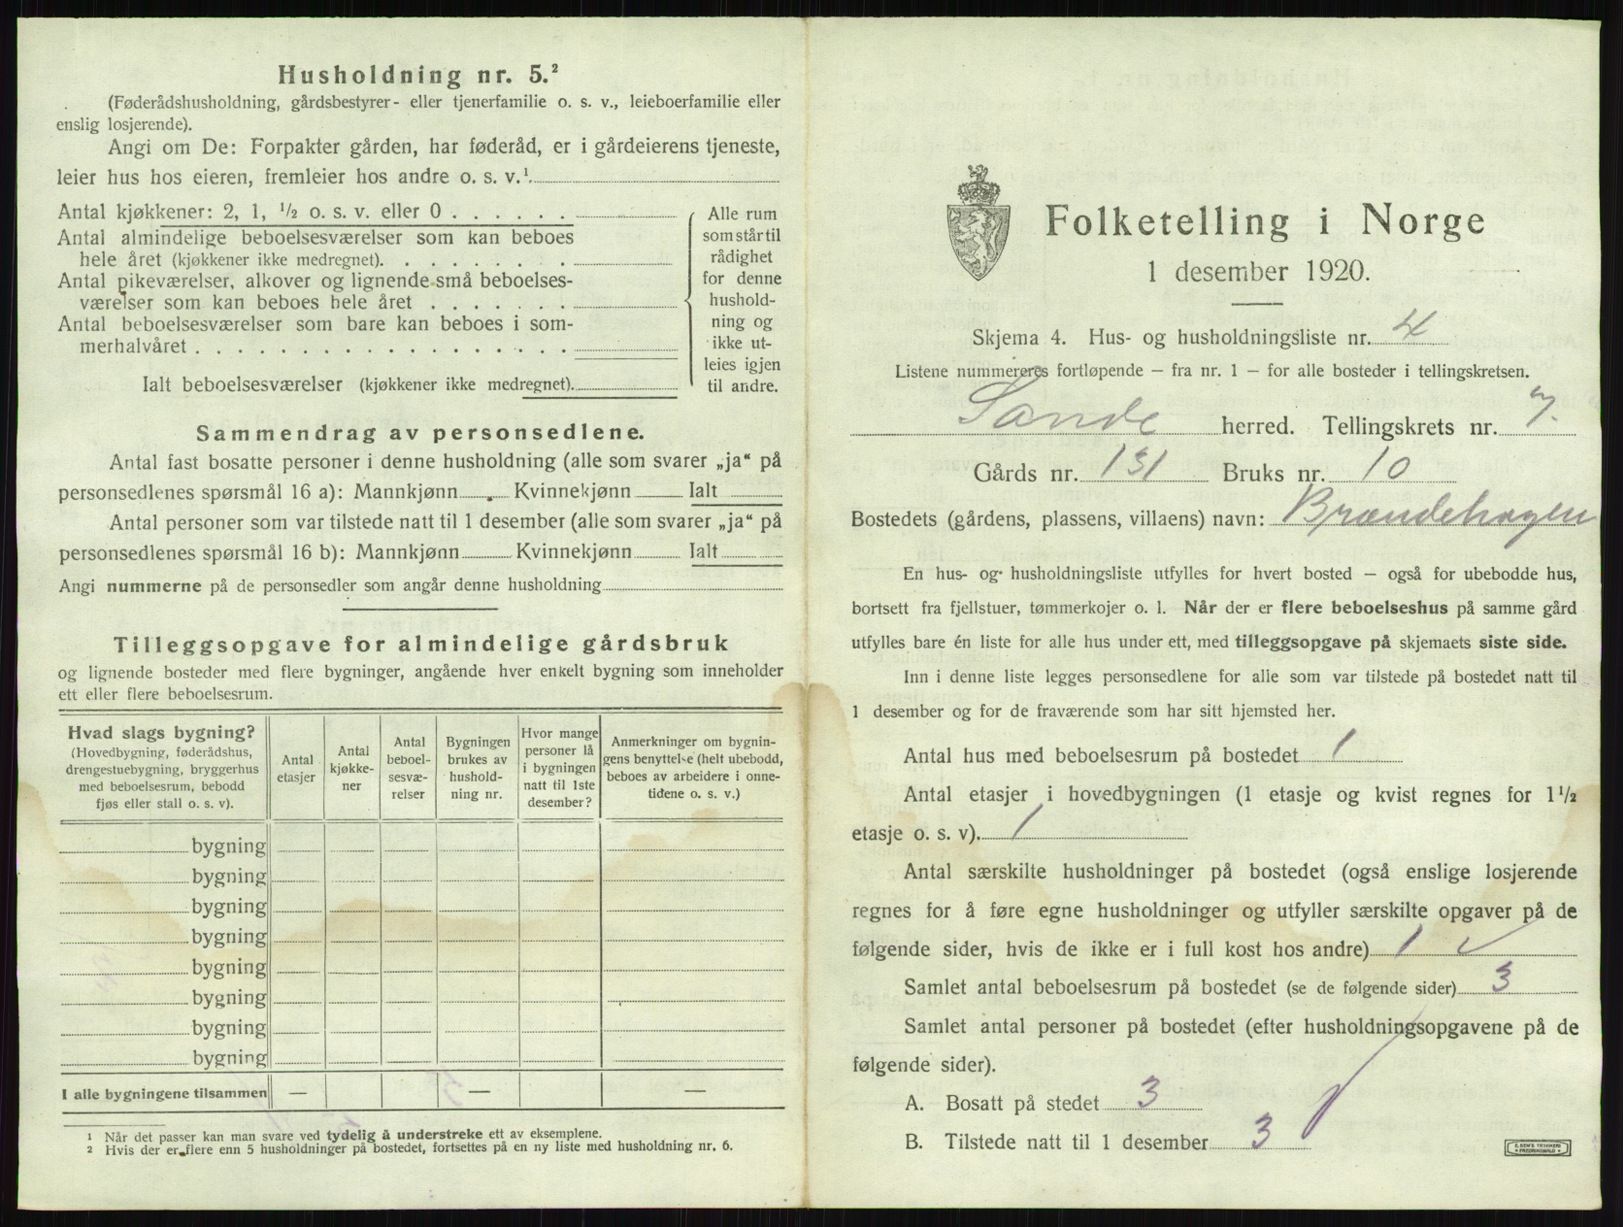 Husholdning nr. 5.²
(Føderådshusholdning, gårdsbestyrer- eller tjenerfamilie o. s. v., leieboerfamilie eller
enslig losjerende).
Angi om De: Forpakter gården, har føderåd, er i gårdeierens tjeneste,
leier hus hos eieren, fremleier hos andre o. s. v.¹
Antal kjøkkener: 2, 1, ½ o. s. v. eller 0 . . . . . .
Antal almindelige beboelsesværelser som kan beboes
hele året (kjøkkener ikke medregnet). . . . . . . . .
Antal pikeværelser, alkover og lignende små beboelses-
værelser som kan beboes hele året . . . . . . .
Antal beboelsesværelser som bare kan beboes i som-
merhalvåret . . . . . . . . . . . . . . . . . .
Ialt beboelsesværelser (kjøkkener ikke medregnet).
Alle rum
som står til
rådighet
for denne
hushold-
ning og
ikke ut-
leies igjen
til andre.
Sammendrag av personsedlene.
Antal fast bosatte personer i denne husholdning (alle som svarer „ja“ på
personsedlenes spørsmål 16 a): Mannkjønn Kvinnekjønn Ialt
Antal personer som var tilstede natt til 1 desember (alle som svarer „ja“ på
personsedlenes spørsmål 16 b): Mannkjønn Kvinnekjønn Ialt
Angi nummerne på de personsedler som angår denne husholdning
Tilleggsopgave for almindelige gårdsbruk
og lignende bosteder med flere bygninger, angående hver enkelt bygning som inneholder
ett eller flere beboelsesrum.
Hvad slags bygning?
(Hovedbygning, føderådshus,
drengestuebygning, bryggerhus
med beboelsesrum, bebodd
fjøs eller stall o. s. v).
Antal
etasjer
Antal
kjøkke-
ner
Antal
beboel-
sesvæ-
relser
Bygningen
brukes av
hushold-
ning nr.
Hvor mange
personer lå
i bygningen
natt til 1ste
desember?
Anmerkninger om bygnin-
gens benyttelse (helt ubebodd,
beboes av arbeidere i onne-
tidene o. s. v.)
bygning
bygning
bygning
bygning
bygning
bygning
bygning
bygning
I alle bygningene tilsammen — — —
¹ Når det passer kan man svare ved tydelig å understreke ett av eksemplene.
² Hvis der er flere enn 5 husholdninger på bostedet, fortsettes på en ny liste med husholdning nr. 6.
Folketelling i Norge
1 desember 1920.
Skjema 4. Hus- og husholdningsliste nr. 4
Listene nummereres fortløpende — fra nr. 1 — for alle bosteder i tellingskretsen.
Sande herred. Tellingskrets nr. 7.
Gårds nr. 131 Bruks nr. 10
Bostedets (gårdens, plassens, villaens) navn: Brændehagen
En hus- og husholdningsliste utfylles for hvert bosted — også for ubebodde hus,
bortsett fra fjellstuer, tømmerkojer o. l. Når der er flere beboelseshus på samme gård
utfylles bare én liste for alle hus under ett, med tilleggsopgave på skjemaets siste side.
Inn i denne liste legges personsedlene for alle som var tilstede på bostedet natt til
1 desember og for de fraværende som har sitt hjemsted her.
Antal hus med beboelsesrum på bostedet 1
Antal etasjer i hovedbygningen (1 etasje og kvist regnes for 1½
etasje o. s. v). 1
Antal særskilte husholdninger på bostedet (også enslige losjerende
regnes for å føre egne husholdninger og utfyller særskilte opgaver på de
følgende sider, hvis de ikke er i full kost hos andre) 1
Samlet antal beboelsesrum på bostedet (se de følgende sider) 3
Samlet antal personer på bostedet (efter husholdningsopgavene på de
følgende sider).
A. Bosatt på stedet 3
B. Tilstede natt til 1 desember 3